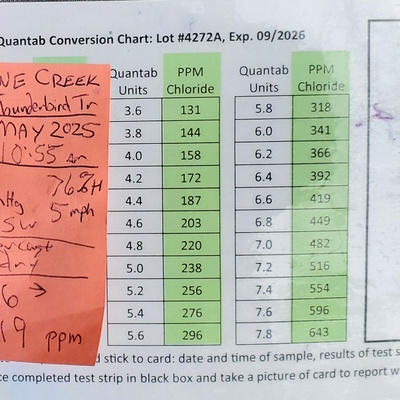 Quantab Conversion Chart: Lot #4272A, Exp. 09/2026
NE CREEK
hunderbird Tr
MAY 2025
10:55 am
76% H
5 mph
SW
dry
6 →
19 ppm
Quantab Units PPM Chloride Quantab Units PPM Chloride
3.6 131 5.8 318
3.8 144 6.0 341
4.0 158 6.2 366
4.2 172 6.4 392
4.4 187 6.6 419
4.6 203 6.8 449
4.8 220 7.0 482
5.0 238 7.2 516
5.2 256 7.4 554
5.4 276 7.6 596
5.6 296 7.8 643
d stick to card: date and time of sample, results of test s
ce completed test strip in black box and take a picture of card to report w